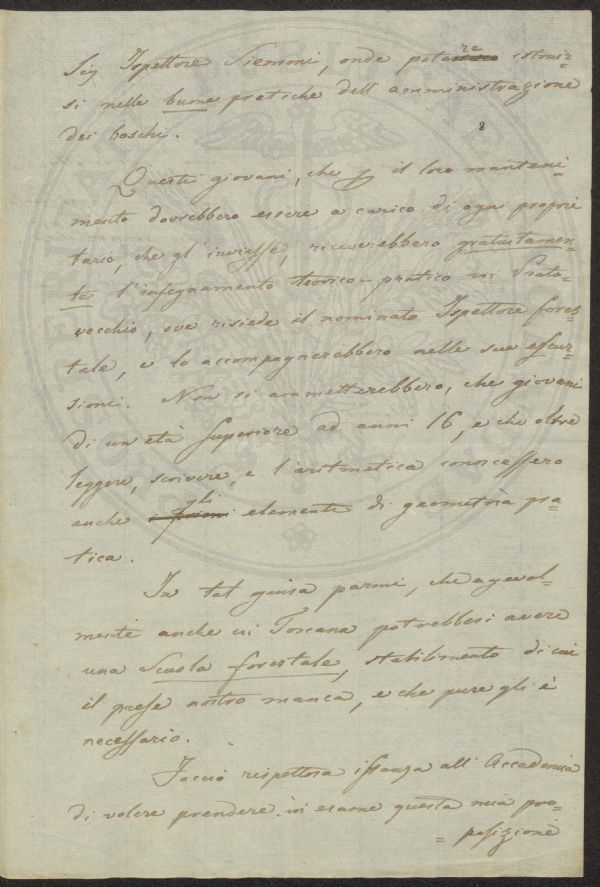 Sig Ispettore Siemoni, onde potere istruir=
si nelle buone pratiche dell'amministrazione
dei boschi.
Questi giovani, che p il loro manteni=
mento dovrebbero essere a carico di ogni proprie
tario, che gl'inviasse, riceverebbero gratuitamen=
te l'insegnamento teorico-pratico in Prato=
vecchio, ove risiede il nominato Ispettore fores
tale, e lo accompagnerebbero nelle sue escur=
sioni. Non si ammetterebbero, che giovani
di un'età superiore ad anni 16, e che oltre
leggere, scrivere, e l'aritmetica conoscessero
anche i primi gli elementi di geometria pra=
tica.
In tal guisa parmi, che agevol=
mente anche in Toscana potrebbesi avere
una Scuola forestale, stabilimento di cui
il paese nostro manca, e che pure gli è
necessario.
Faccio rispettosa istanza all'Accademia
di volere prendere in esame questa mia pro=
= posizione